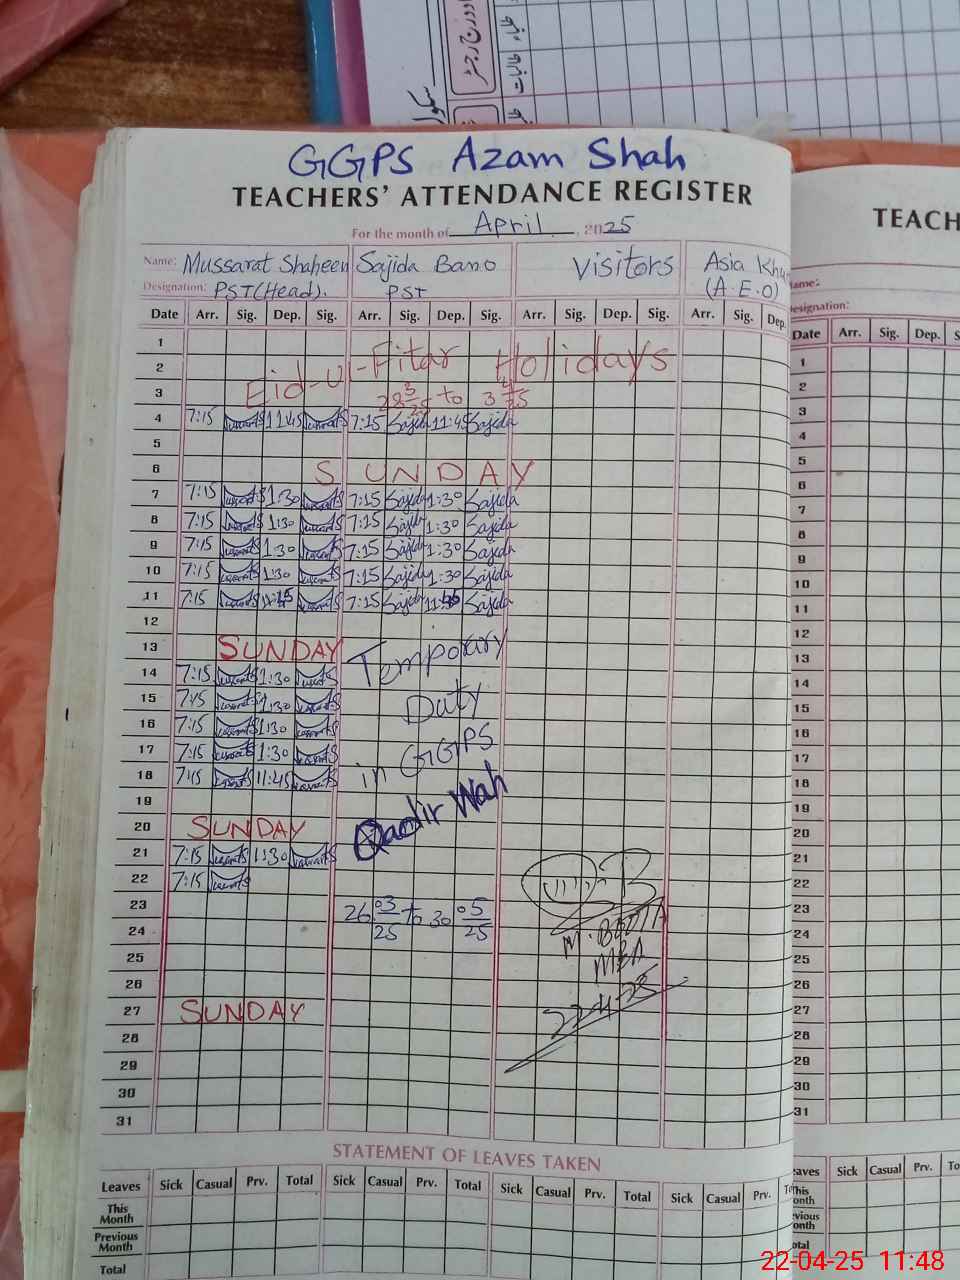 GGPS Azam Shah
TEACHERS' ATTENDANCE REGISTER
For the month of April, 2025
Name: Mussarat Shaheen Sajida Bano Visitors Asia
Designation: PST (Head). PST (A.E.O)
Date Arr. Sig. Dep. Sig. Arr. Sig. Dep. Sig. Arr. Sig. Dep. Sig. Arr. Sig. Dep.
1
2 Eid-ul-Fitar Holidays
3 to
4 7:15 11:45 7:15 Sajida 11:45 Sajida
5
6 SUNDAY
7 7:15 1:30 7:15 Sajida 1:30 Sajida
8 7:15 1:30 7:15 Sajida 1:30 Sajida
9 7:15 1:30 7:15 Sajida 1:30 Sajida
10 7:15 1:30 7:15 Sajida 1:30 Sajida
11 7:15 11:45 7:15 Sajida 11:45 Sajida
12
13 SUNDAY Temporary
14 7:15 1:30
15 7:15 1:30 Duty
16 7:15 1:30
17 7:15 1:30 in GGPS
18 7:15 11:45
19 Qadir Wah
20 SUNDAY
21 7:15 1:30
22 7:15
23 26 03/25 to 30 05/25
24 M.
25 MEA
26
27 SUNDAY 22-4-25
28
29
30
31
STATEMENT OF LEAVES TAKEN
Leaves Sick Casual Prv. Total Sick Casual Prv. Total Sick Casual Prv. Total Sick Casual Prv.
This Month
Previous Month
Total
TEACH
Date Arr. Sig. Dep.
1
2
3
4
5
6
7
8
9
10
11
12
13
14
15
16
17
18
19
20
21
22
23
24
25
26
27
28
29
30
31
Sick Casual Prv.
22-04-25 11:48